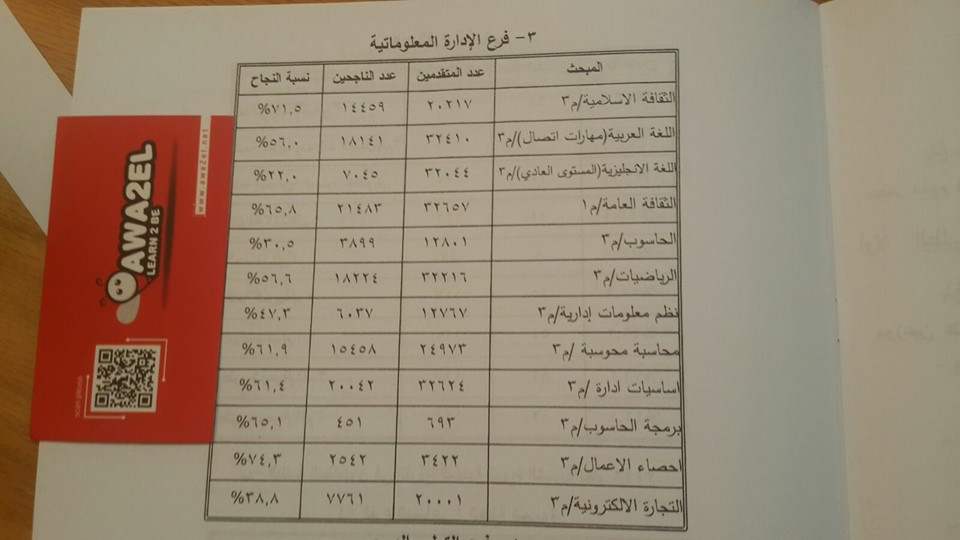 ٣- فرع الإدارة المعلوماتية
المبحث عدد المتقدمين عدد الناجحين نسبة النجاح
الثقافة الاسلامية/م٣ ٢٠٢١٧ ١٤٤٥٩ %٧١,٥
اللغة العربية(مهارات اتصال)/م٣ ٣٢٤١٠ ١٨١٤١ %٥٦,٠
اللغة الانجليزية(المستوى العادي)/م٣ ٣٢٠٤٤ ٧٠٤٥ %٢٢,٠
الثقافة العامة/م١ ٣٢٦٥٧ ٢١٤٨٣ %٦٥,٨
الحاسوب/م٣ ١٢٨٠١ ٣٨٩٩ %٣٠,٥
الرياضيات/م٣ ٣٢٢١٦ ١٨٢٢٤ %٥٦,٦
نظم معلومات إدارية/م٣ ١٢٧٦٧ ٦٠٣٧ %٤٧,٣
محاسبة محوسبة /م٣ ٢٤٩٧٣ ١٥٤٥٨ %٦١,٩
اساسيات ادارة /م٣ ٣٢٦٢٤ ٢٠٠٤٢ %٦١,٤
برمجة الحاسوب/م٣ ٦٩٣ ٤٥١ %٦٥,١
احصاء الاعمال/م٣ ٣٤٢٢ ٢٥٤٢ %٧٤,٣
التجارة الالكترونية/م٣ ٢٠٠٠١ ٧٧٦١ %٣٨,٨
www.awa2el.net
AWA2EL
LEARN 2 BE